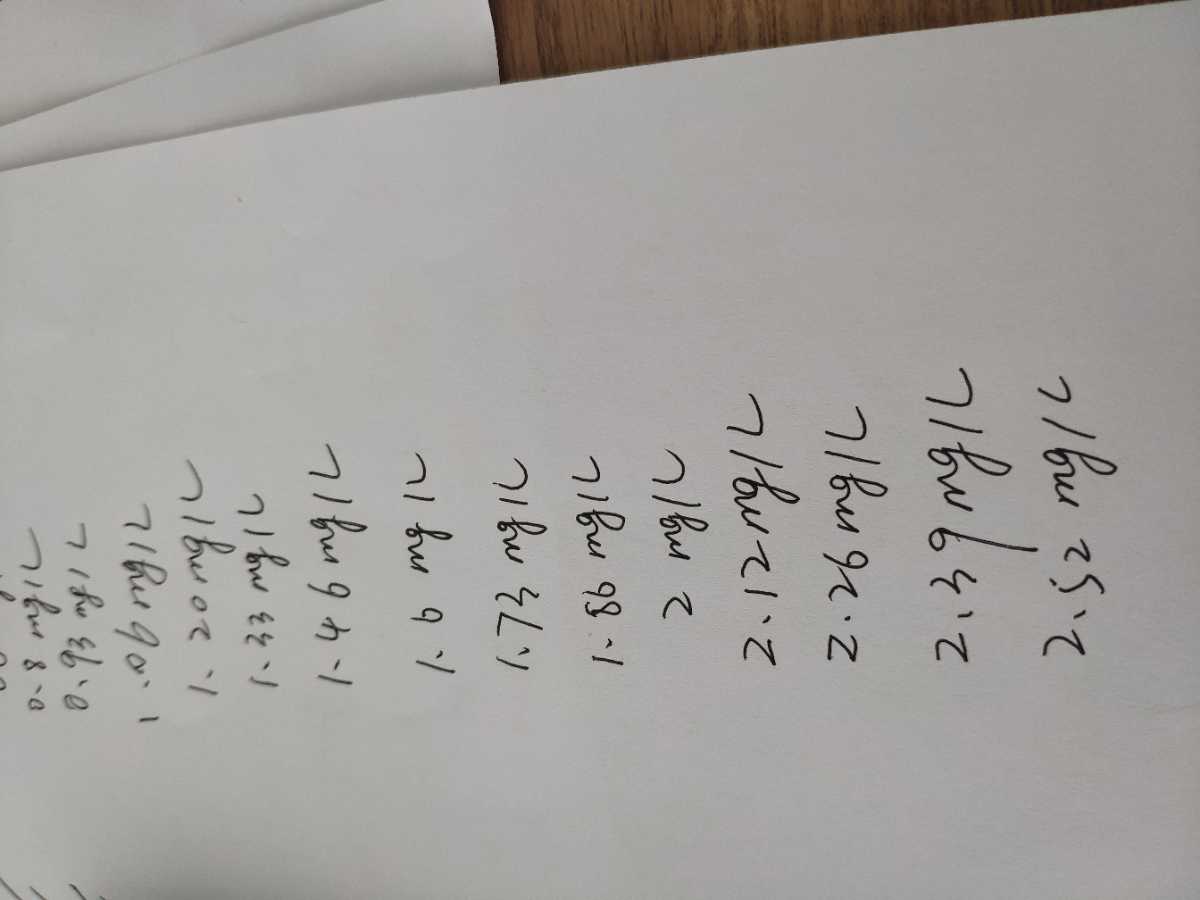 0.8 mg/L
0.93 mg/L
1.06 mg/L
1.20 mg/L
1.33 mg/L
1.46 mg/L
1.6 mg/L
1.73 mg/L
1.86 mg/L
2 mg/L
2.12 mg/L
2.26 mg/L
2.39 mg/L
2.52 mg/L